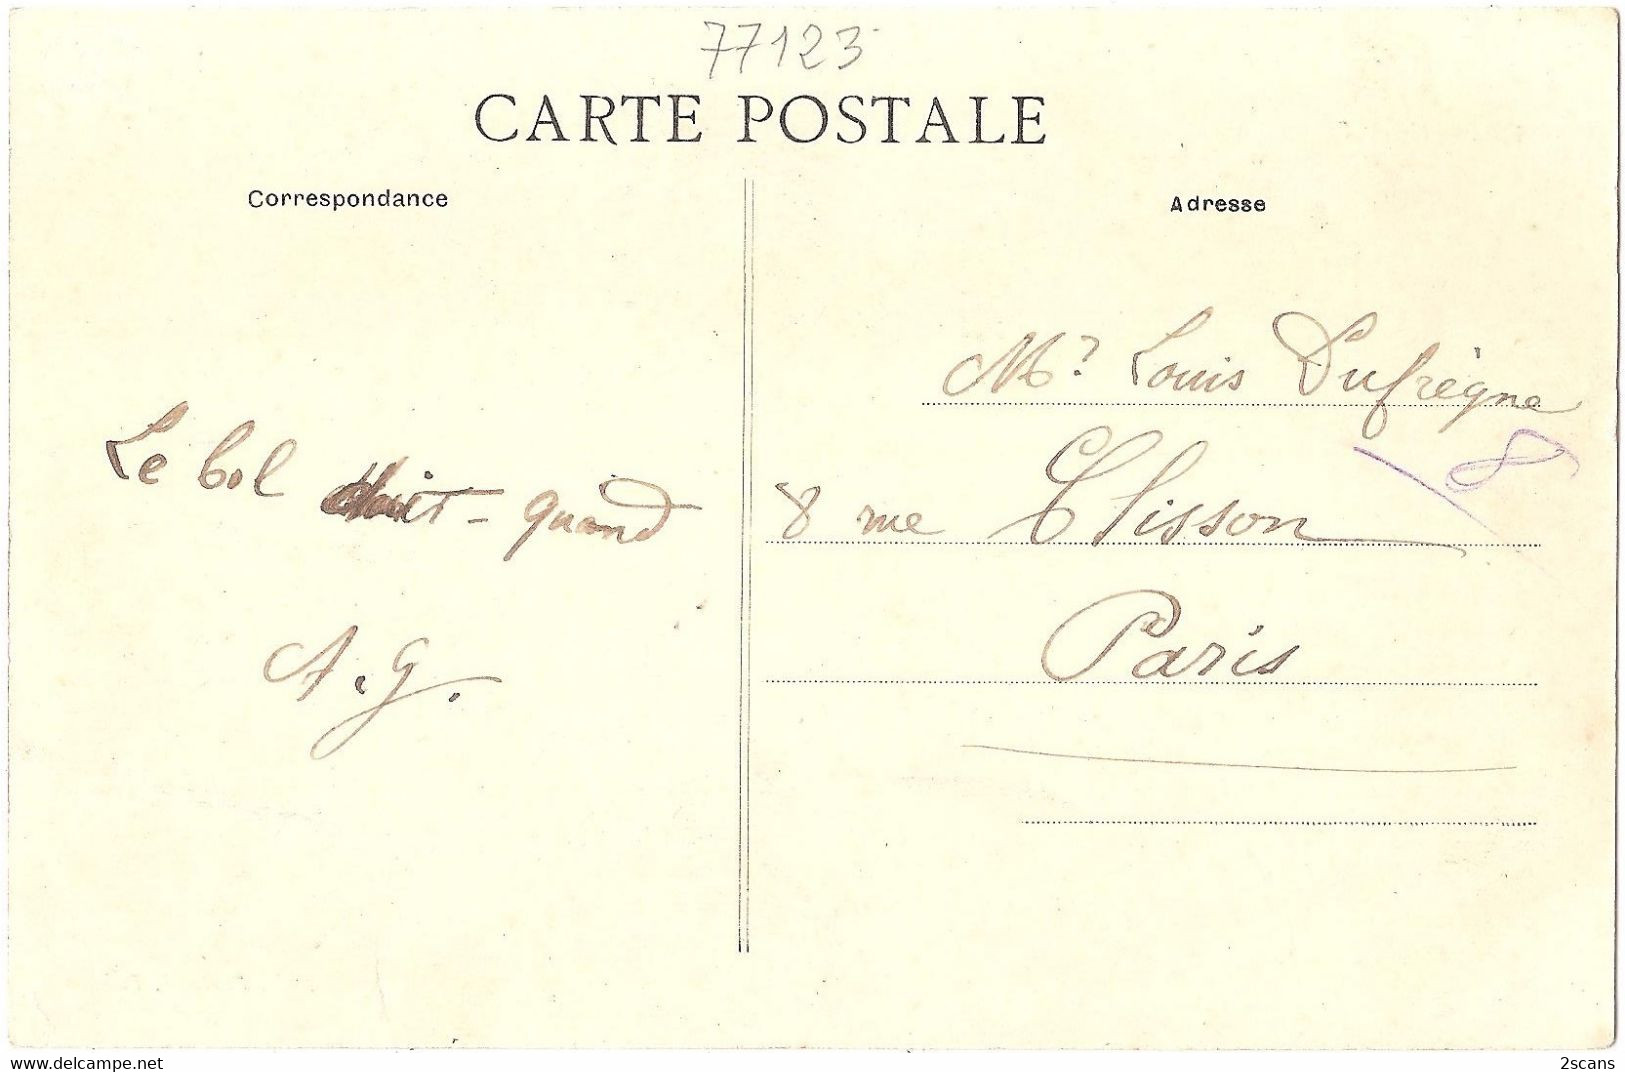 77123
CARTE POSTALE
Correspondance
Adresse
Mr Louis Dufrègne
8
8 rue Clisson
Paris
Le bol - quand
A.G.
www.delcampe.net
2scans